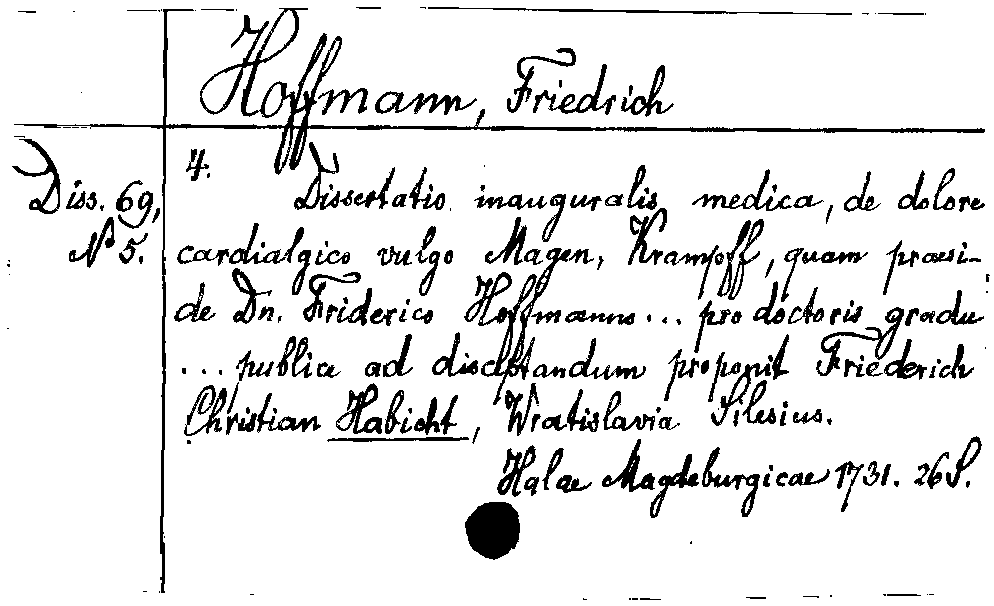 Hoffmann, Friedrich
Diss. 69,
No 5.
4.
Dissertatio inauguralis medica, de dolore
cardialgico vulgo Magen, Krampff, quam praesi-
de Dn. Friderico Hoffmanno... pro doctoris gradu
... publice ad disputandum proponit Friederich
Christian Habicht, Wratislavia Silesius.
Halae Magdeburgicae 1731. 26 S.